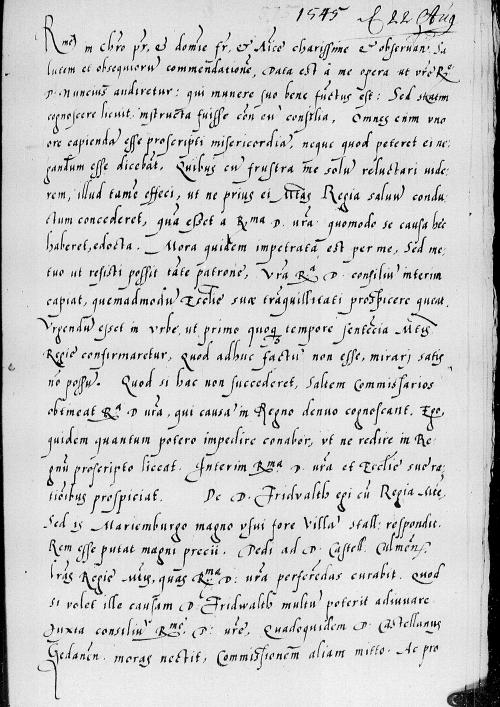 1545 E 22 Aug
R.me in chro pr, & domie fr, & Vice charissime & observan. Sa
lutem et obsequioru commendatione, Data est à me opera ut vre R.e
D. Nuncius audiretur: qui munere suo bene functus est: Sed statim
cognoscere licuit instructa fuisse cōn eu consilia, Omnes enim uno
ore capienda esse proscripti misericordia, neque quod peteret ei ne,
gandum esse dicebāt, Quibus cu frustra me solu reluctari vide
rem, illud tame effeci, ut ne prius ei Mtas Regia saluu condu,
ctum concederet, quā esset à Rma D. ura quomodo se causa hec
haberet, edocta. Mora quidem impetrata est per me, Sed me,
tuo ut resisti possit tāte patrone, Vra R.a D. consiliu interim
capiat, quemadmodu Ecclie suæ trāquillitati prospicere queat.
Urgendu esset in Urbe, ut primo quoq tempore sentecia Mtis
Regie confirmaretur, Quod adhuc factu non esse, mirari satis
nō possu. Quod si hac non succederet, Saltem Commissarios
obtineat R.a D ura, qui causā in Regno denuo cognoscant. Ego,
quidem quantum potero impedire conabor, ut ne redire in Re,
gnu proscripto liceat. Interim Rma. D. ura et Ecclie sue ra,
tioibus prospiciat. De D. Fridwalth egi cū Regia Mte,
Sed is Mariemburgo magno usui fore Villā stall: respondit.
Rem esse putat magni precii. Dedi ad D. Castell. Culmen,
Lras Regie Mtis, quas Rma D: ura perferēdas curabit. Quod
si volet ille causam D. Fridwalth multu poterit adiuvare
Juxta consiliu Rme, D: ure, Quadoquidem D. Castellanus
Gedanen. moras nectit, Commissionem aliam mitto. Ac pro